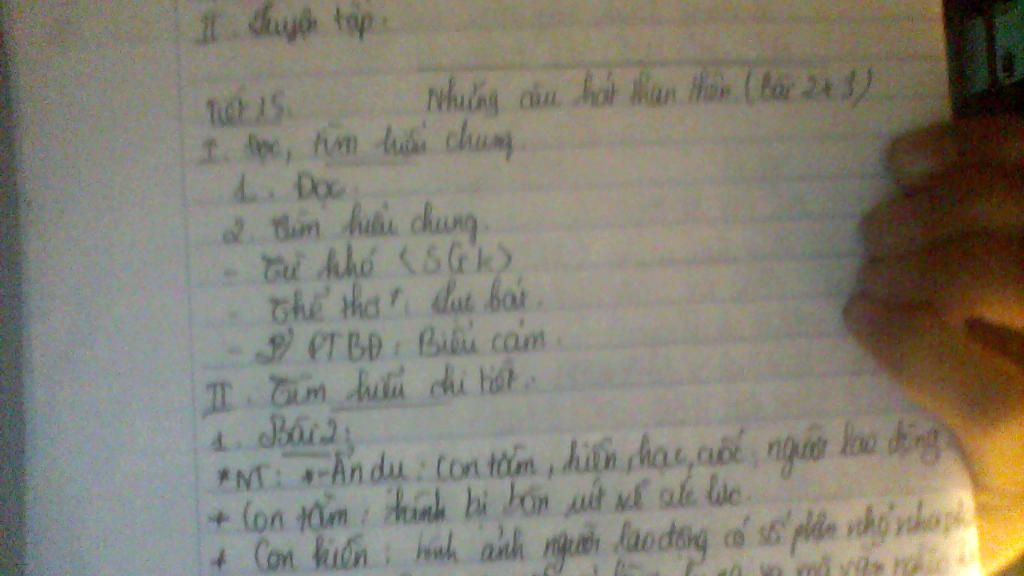 II. Luyện tập.
Tiết 15. Những câu hát than thân (Bài 2+3)
I. Đọc, tìm hiểu chung.
1. Đọc.
2. Tìm hiểu chung.
- Từ khó (SGK)
- Thể thơ: Lục bát.
- PTBĐ: Biểu cảm.
II. Tìm hiểu chi tiết.
1. Bài 2:
*NT: - Ẩn dụ: Con tằm, kiến, hạc, cuốc, người lao động
+ Con tằm: bị bòn rút về sức lực.
+ Con kiến: hình ảnh người lao động có số phận nhỏ nhoi